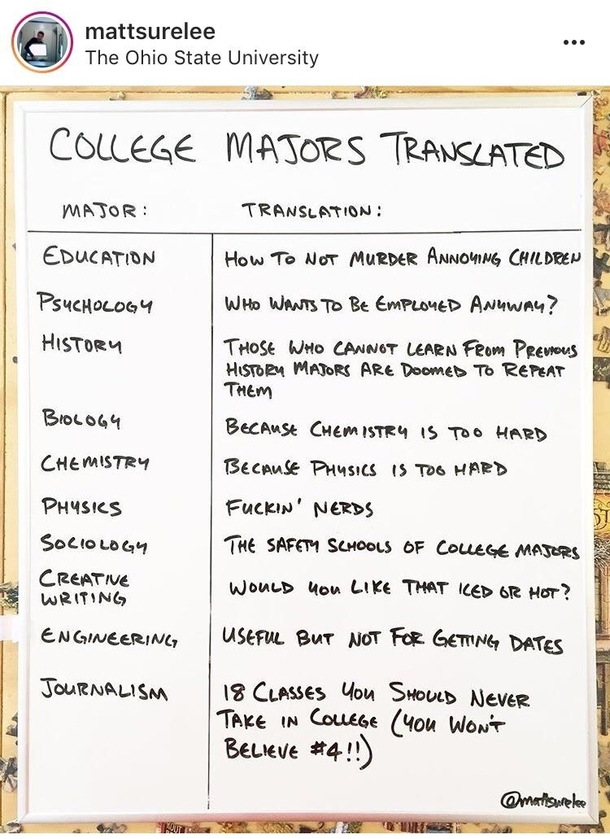 mattsurelee
The Ohio State University
COLLEGE MAJORS TRANSLATED
MAJOR: TRANSLATION:
EDUCATION HOW TO NOT MURDER ANNOYING CHILDREN
PSYCHOLOGY WHO WANTS TO BE EMPLOYED ANYWAY?
HISTORY THOSE WHO CANNOT LEARN FROM PREVIOUS
HISTORY MAJORS ARE DOOMED TO REPEAT
THEM
BIOLOGY BECAUSE CHEMISTRY IS TOO HARD
CHEMISTRY BECAUSE PHYSICS IS TOO HARD
PHYSICS FUCKIN' NERDS
SOCIOLOGY THE SAFETY SCHOOLS OF COLLEGE MAJORS
CREATIVE
WRITING WOULD YOU LIKE THAT ICED OR HOT?
ENGINEERING USEFUL BUT NOT FOR GETTING DATES
JOURNALISM 18 CLASSES YOU SHOULD NEVER
TAKE IN COLLEGE (YOU WON'T
BELIEVE #4!!)
@mattsurelee